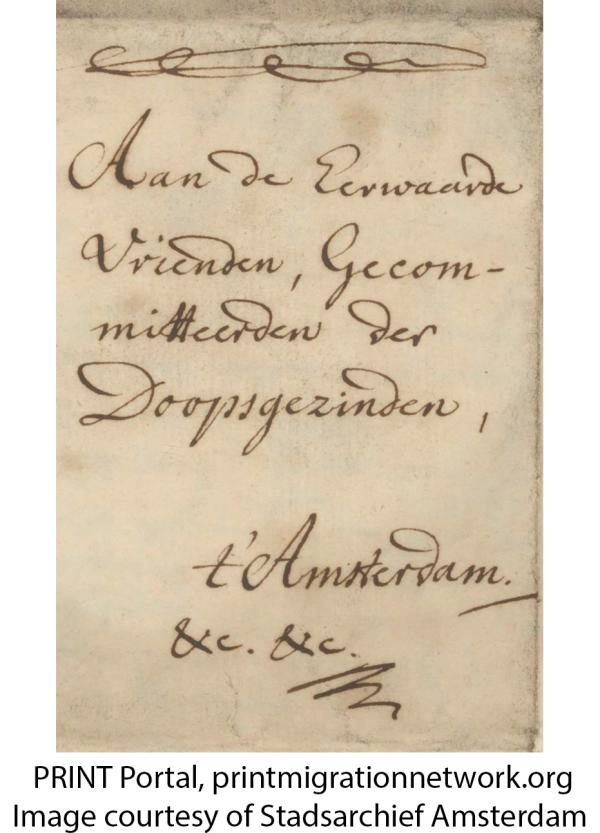 Aan de Eerwaarde
Vrienden, Gecom-
mitteerden der
Doopsgezinden,
t'Amsterdam.
&c. &c.
PRINT Portal, printmigrationnetwork.org
Image courtesy of Stadsarchief Amsterdam